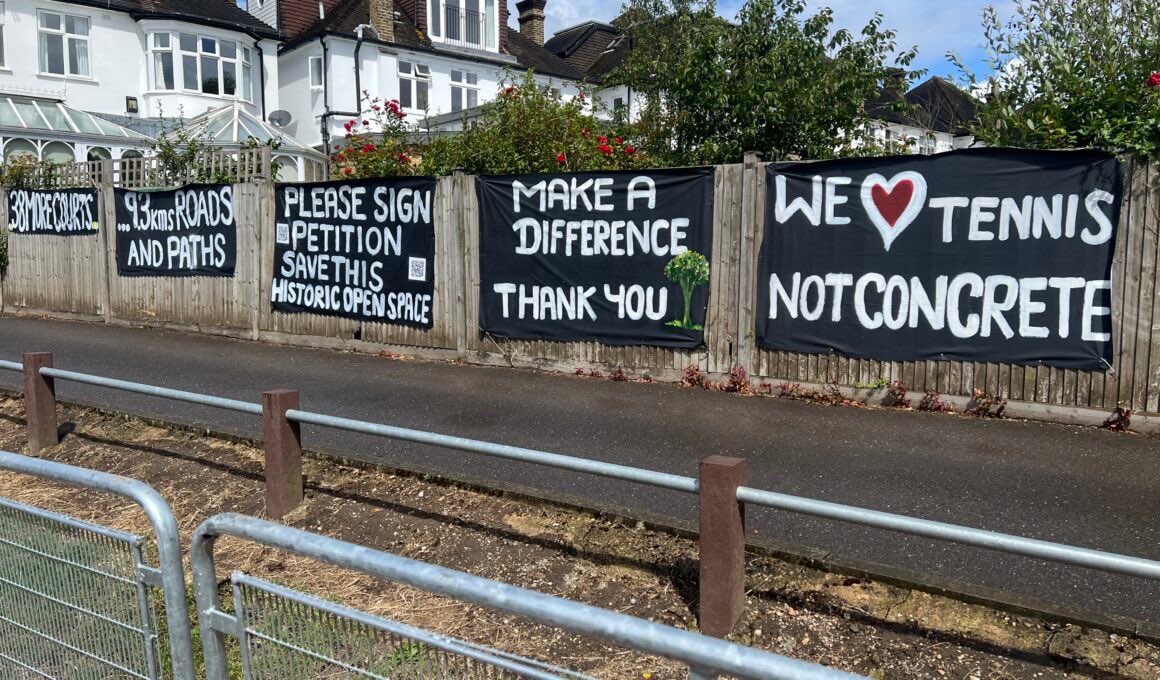 38 MORE COURTS...
...9.3kms ROADS
AND PATHS
PLEASE SIGN
PETITION
SAVE THIS
HISTORIC OPEN SPACE
MAKE A
DIFFERENCE
THANK YOU
WE ❤ TENNIS
NOT CONCRETE